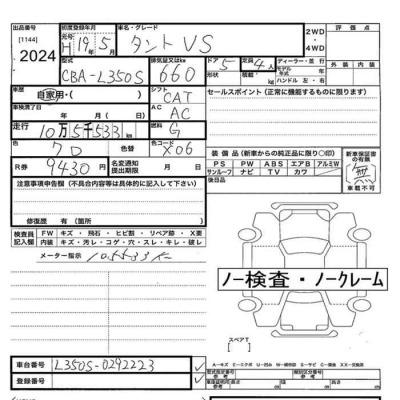 出品番号 初度登録年月 車名・グレード 2WD ・ 4WD 評価点
[1144] 元号 H 19年 5月 タント VS
2024 外装 内装
型式 排気又はkw ドア 定員 ディーラー・並行
CBA-L350S 660 5 4人
車歴 シフト セールスポイント (正常に機能するものに限ります)
自家用・( ) CAT
車検満了日 AC
年 月 日 AC
走行 燃料
10万5千533km G
色 色替 色コード 装備品 (新車からの純正品に限り○印) 新車保証書の有無
7D X06 PS PW ABS エアB アルミW
R券 9430円 名変通知提出期限 月 日 サンルーフ ナビ TV カワ
有 無 車載不可
注意事項申告欄 (不具合内容等は具体的に記入して下さい) 後日品
修復歴 有 (箇所 )
検査員記入欄 FW キズ・飛石・ヒビ割・リペア跡・X要
内装 キズ・汚レ・コゲ・穴・スレ・キレ・破レ
メーター指示 105533K
ノー検査・ノークレーム
スペアT
車台番号 L350S-0292223
登録番号